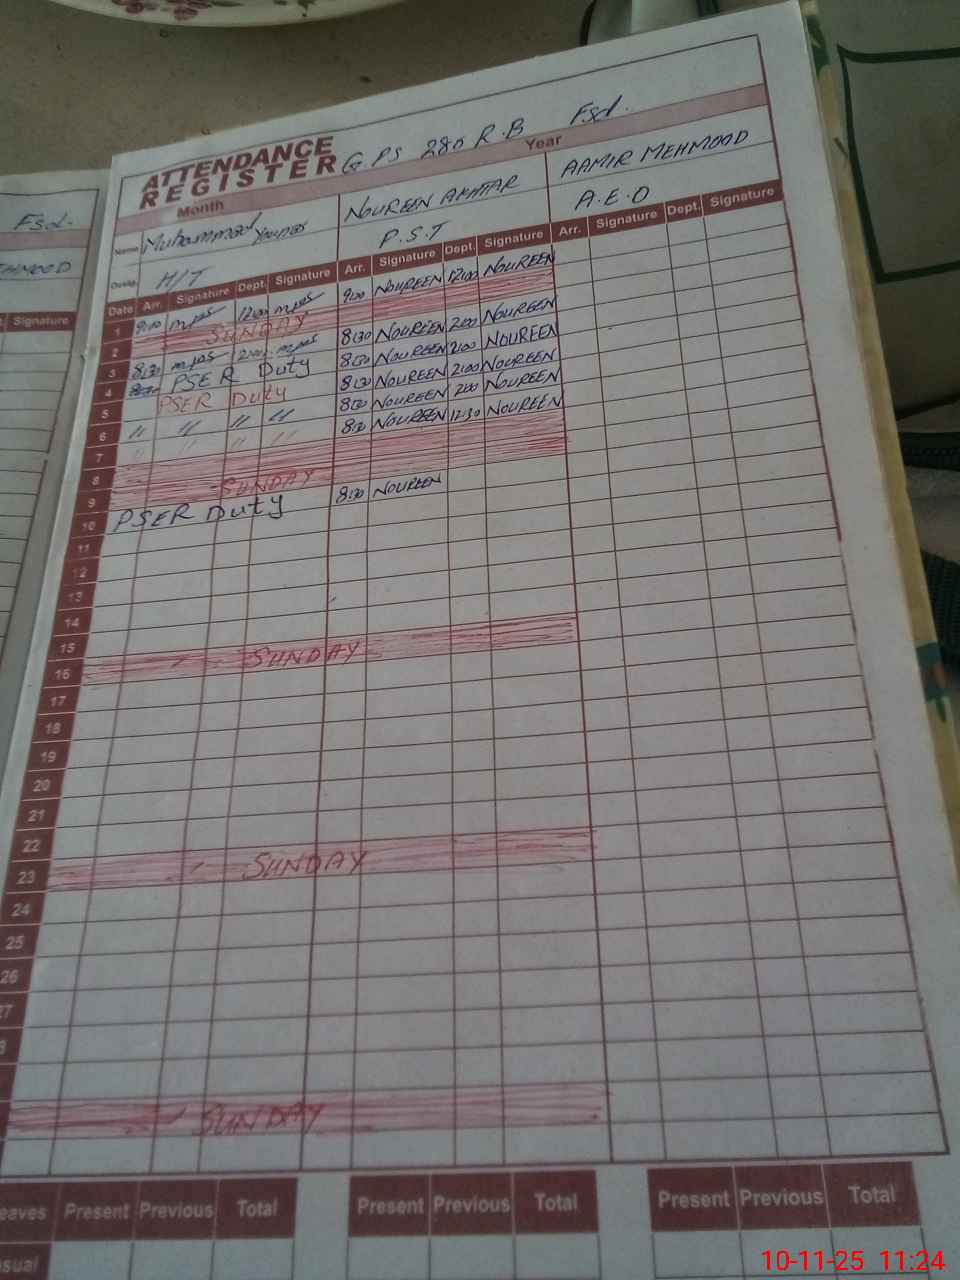 ATTENDANCE REGISTER G PS 280 R.B Fsd.
Month Year
Fsd.
Name Muhammad Younas NOUREEN AKHTAR AAMIR MEHMOOD
Desig. H/T P.S.T A.E.O
Signature
Date Arr. Signature Dept. Signature Arr. Signature Dept. Signature Arr. Signature Dept. Signature
1 9:00 12:00 9:00 NOUREEN 12:00 NOUREEN
2 SUNDAY
3 8:30 2:00 8:30 NOUREEN 2:00 NOUREEN
4 PSER Duty 8:30 NOUREEN 2:00 NOUREEN
5 PSER Duty 8:30 NOUREEN 2:00 NOUREEN
6 " " " " 8:30 NOUREEN 2:00 NOUREEN
7 " " " " 8:30 NOUREEN 12:30 NOUREEN
8
9 SUNDAY
10 PSER Duty 8:30 NOUREEN
11
12
13
14
15
16 SUNDAY
17
18
19
20
21
22
23 SUNDAY
24
25
26
27
SUNDAY
Present Previous Total Present Previous Total Present Previous Total
10-11-25 11:24